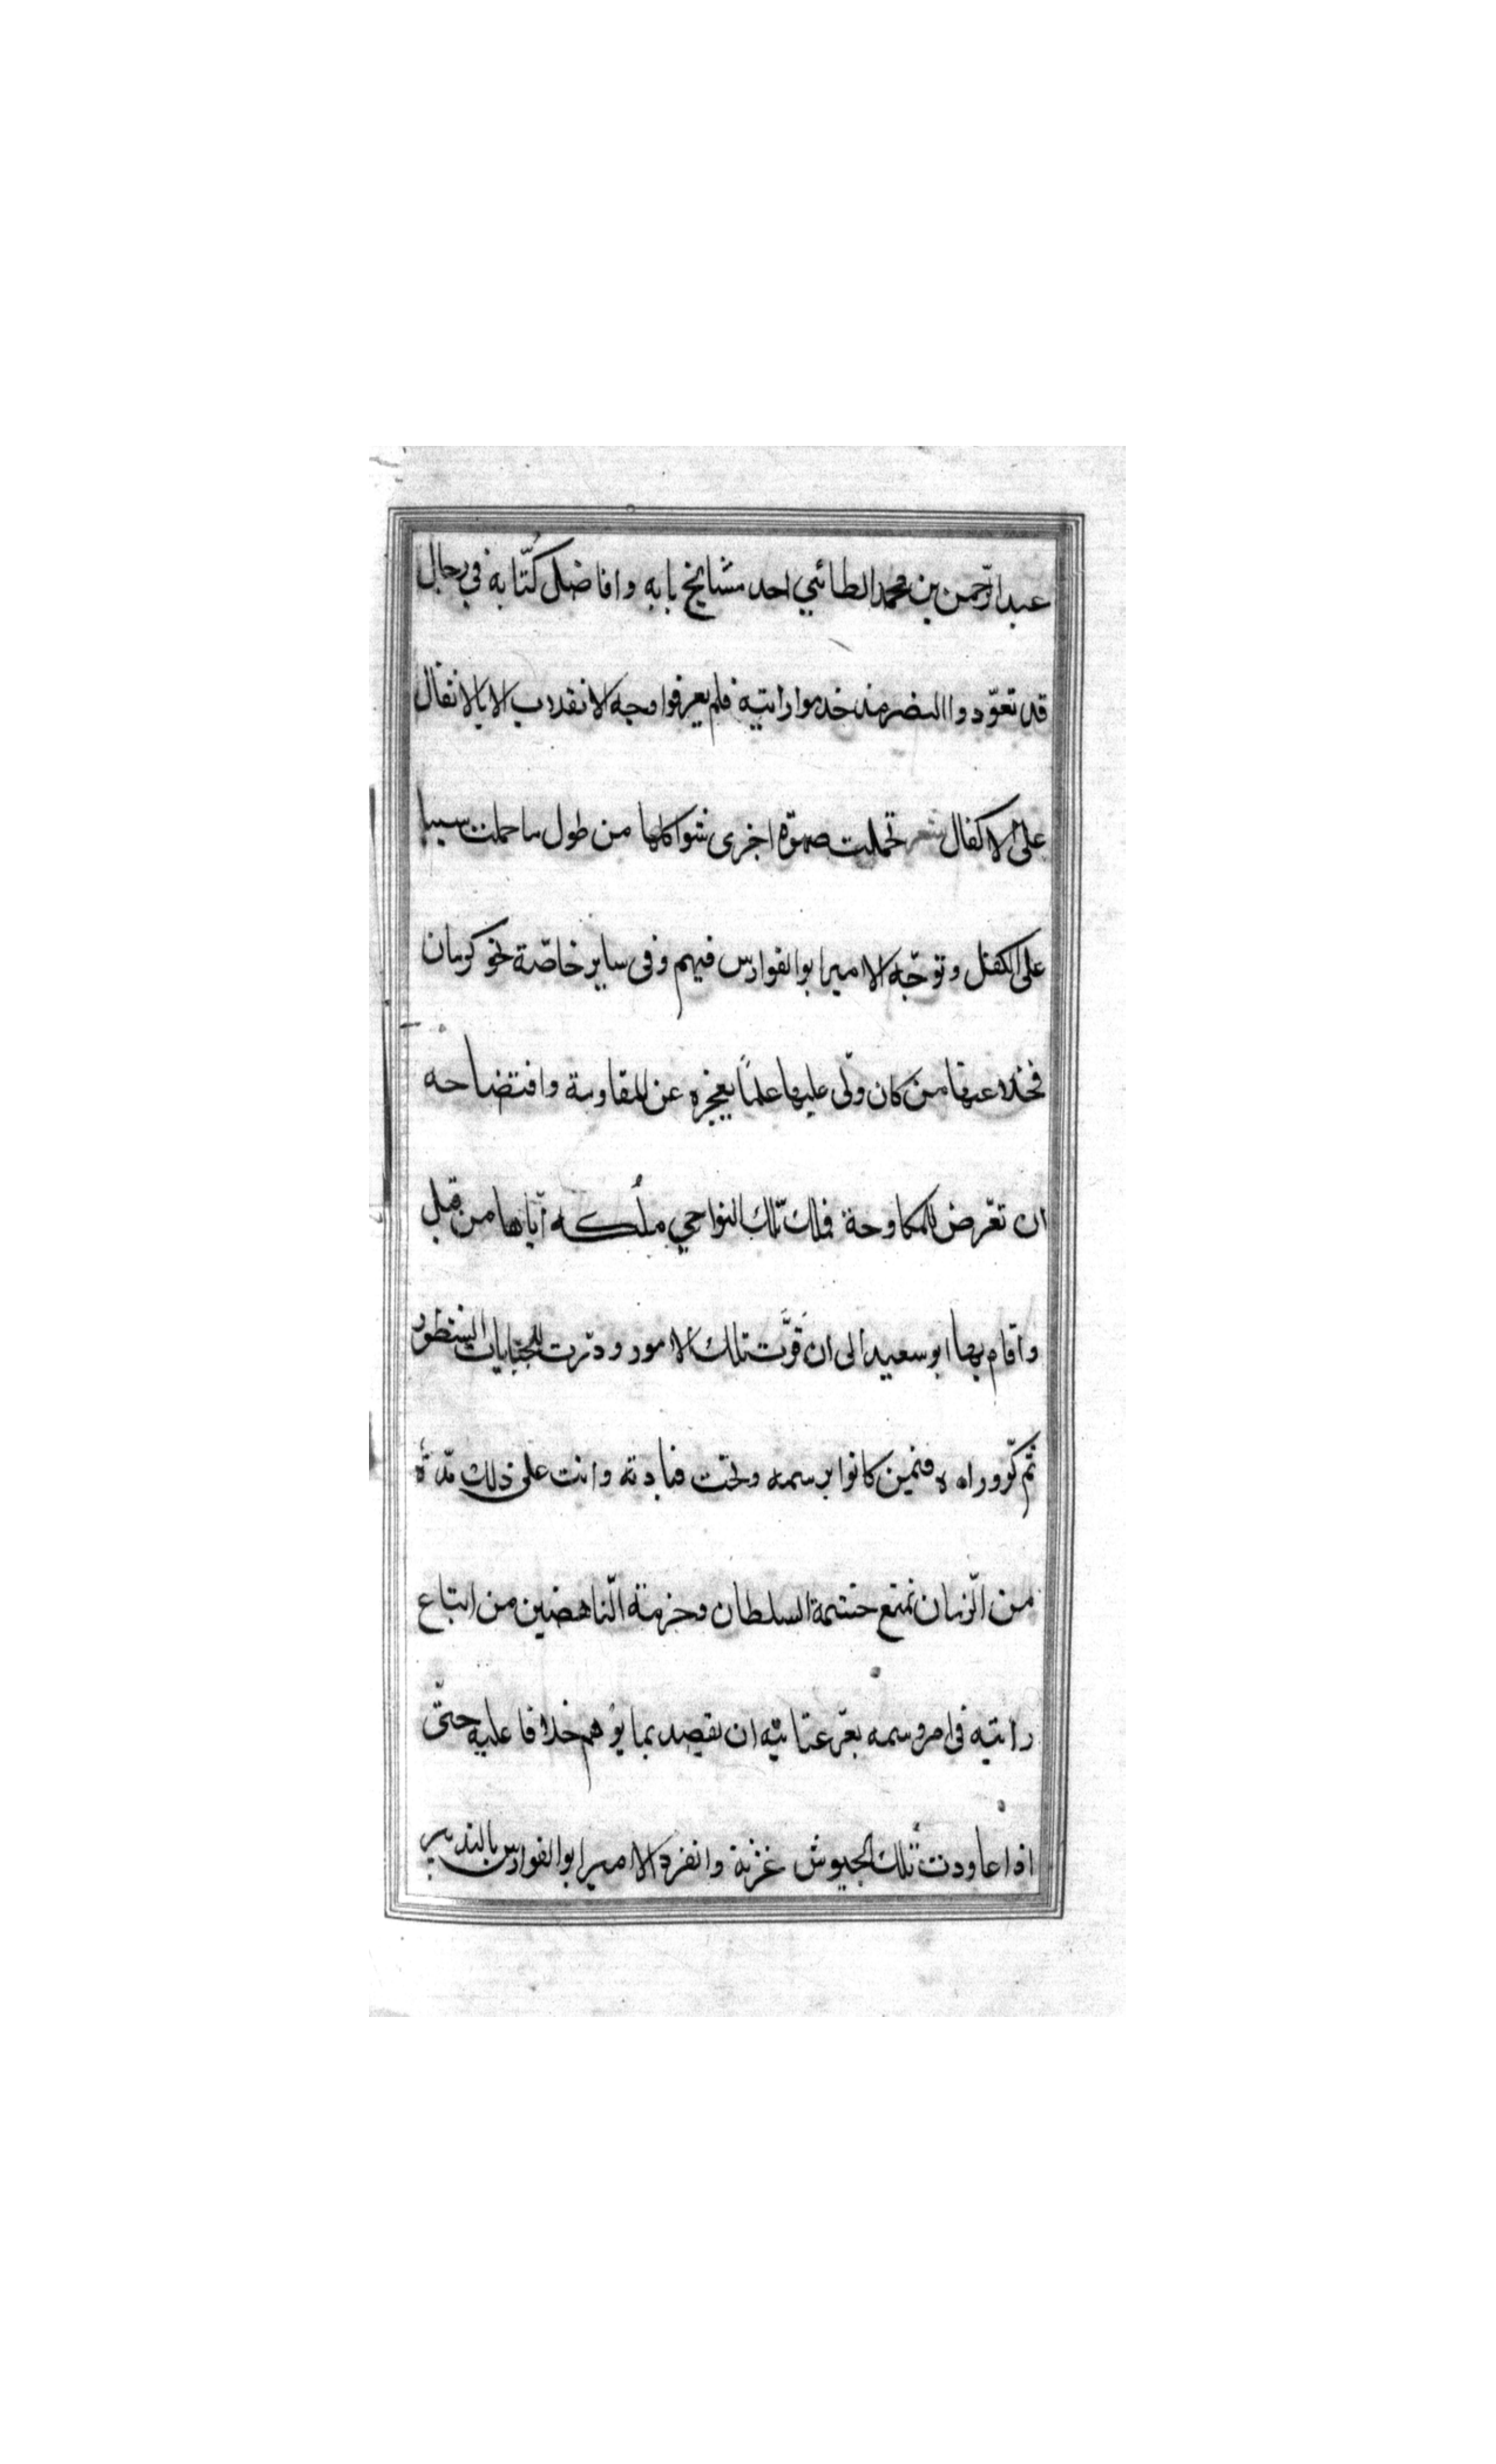 عبد الرّحمن بن محمد الطائي احد مشايخ بابه وافاضل كُتّابه في رجال
قد تعوّدوا النصر منذ خدموا رايته فلم يعرفوا وجه الانقلاب الا بالانفال
على الاكفال شعر تحملت صهوة اخرى شواكلها من طول ما حملت سبيا
على الكفل وتوجّه الامير ابو الفوارس فيهم وفى ساير خاصّة نحو كرمان
فخلا عنها من كان ولّى عليها علمًا بعجزه عن المقاومة وافتضاحه
ان تعّرض للمكاوحة فملك تلك النواحي ملُكه ايّاها من قبل
واقام بها ابو سعيد الى ان قرّت تلك الامور ودرّت للجبايات الشطور
ثم كرّ وراه فيمن كانوا برسمه وتحت قيادته واتت على ذلك مدّة
من الزّمان تمنع حشمة السلطان وحرمة النّاهضين من اتباع
رايته فى امر وسمه بعزّ عنايته ان يقصد بما يوُهم خلافا عليه حتّى
اذا عاودت تلك الجيوش غزنة وانفرد الامير ابو الفوارس بالتدبير